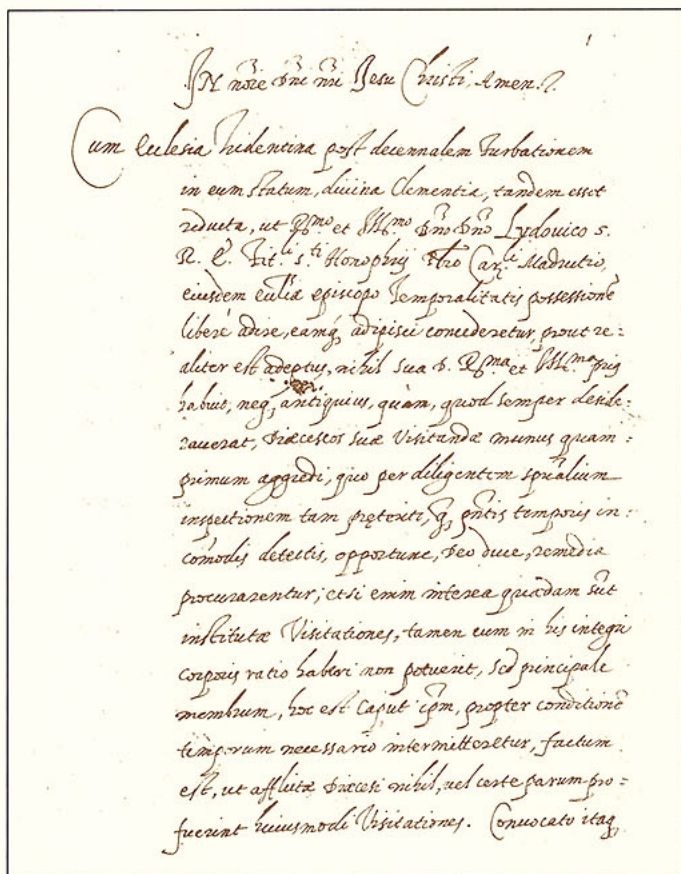 1
IN nõie dñi nŕi Jesu Christi, Amen.
Cum Ecclesia Tridentina post decennalem turbationem
in eum statum, diuina Clementia, tandem esset
reducta, ut R.mo et Ill.mo Dño Dño Lydouico S.
R. E. Tit.li S.ti Honophrij Pbro Car.li Madrutio,
eiusdem eccliæ episcopo Temporalitatis possessionẽ
liberè adire, eamq, adipisci concideretur, prout re=
aliter est adeptus, nihil sua D. R.ma et Ill.ma prius
habuit, neq, antiquius, quàm, quod semper deside=
rauerat, Diæcesos suæ Visitandæ munus quam=
primum aggredi, quo per diligentem sprãlium
inspectionem tam pręteriti, q, pñtis temporis in=
cõmodis detectis, opportune, Deo duce, remedia
procurarentur; etsi enim interea quædam sũt
institutæ Visitationes, tamen cum in his integri
corporis ratio haberi non potuerit, sed principale
membrum, hoc est Caput ipm, propter conditionẽ
temporum necessario intermitteretur, factum
est, ut afflictæ Diæcesi nihil, uel certe parum pro=
fuerint huiusmodi Visitationes. Conuocato itaq,